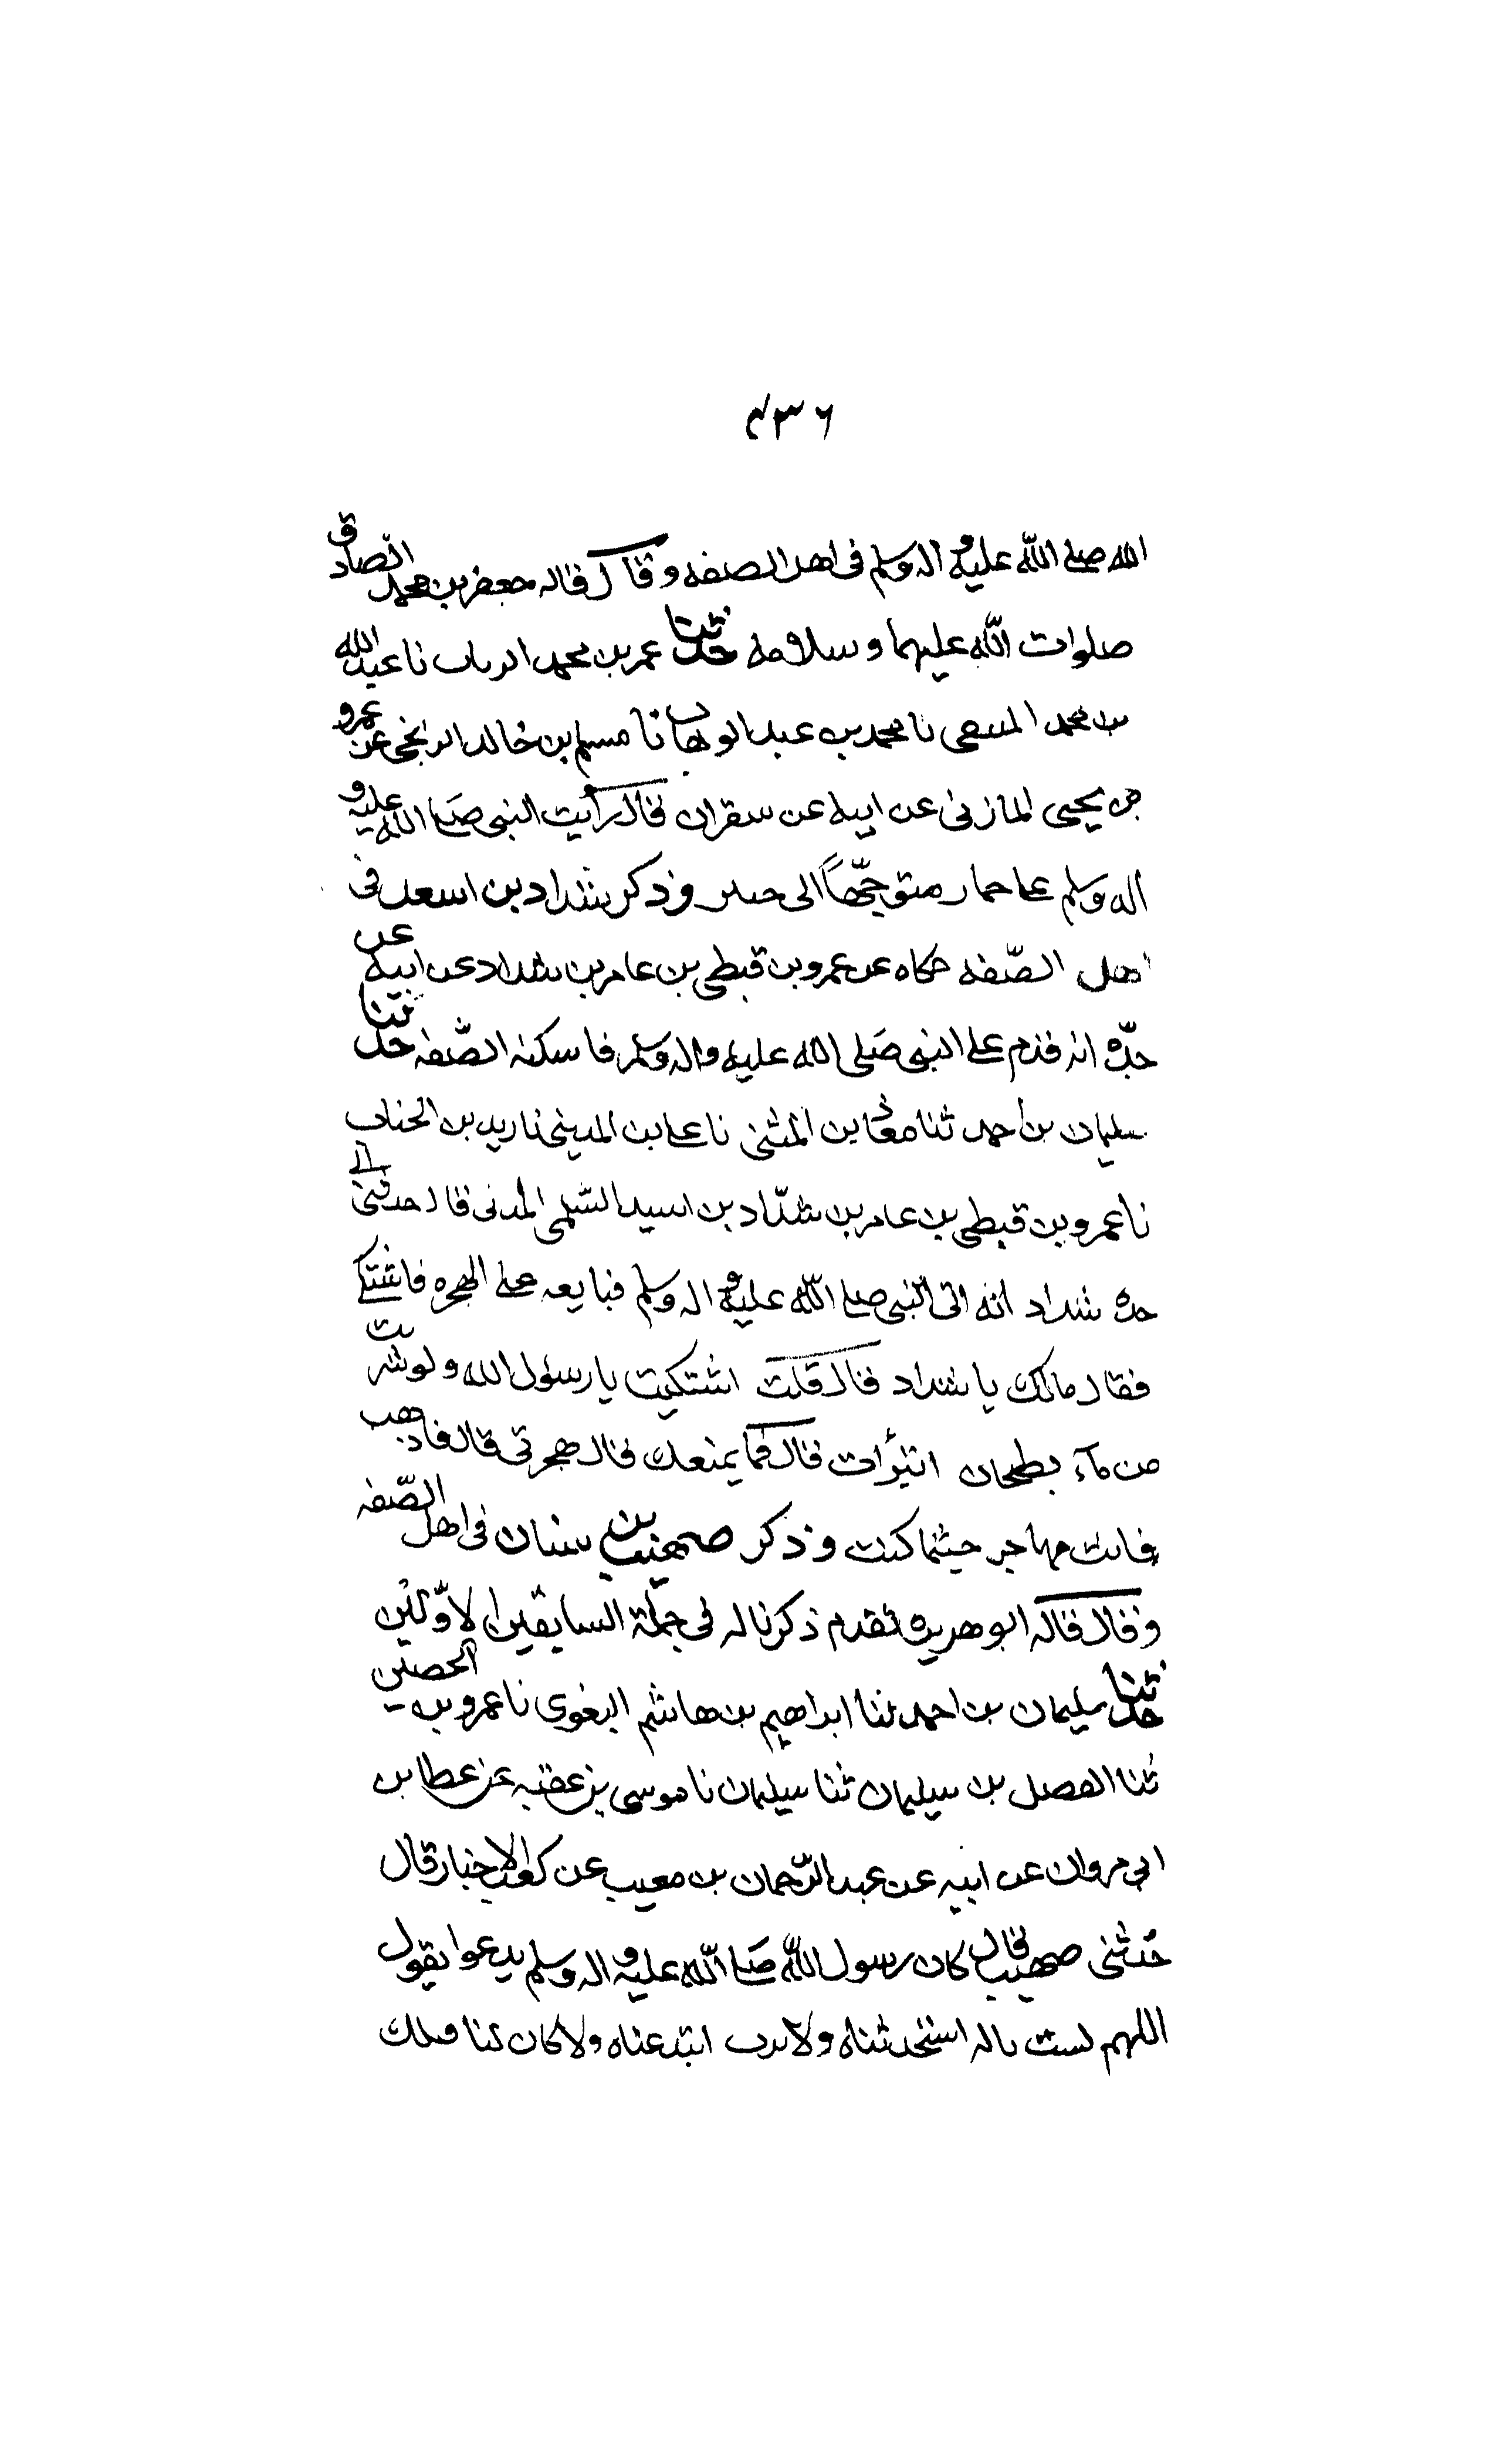 ٤٣٦
الله صلى الله عليه و اله وسلم فى اهل الصفه و قال قاله جعفر بن محمد الصادق
صلوات الله عليهما وسلامه حدثنا عمر بن محمد الزيات نا عبد الله
بن محمد المنيعى نا محمد بن عبد الوهاب نا مسلم بن خالد الزنجى عن عمرو
بن يحيى المازنى عن ابيه عن سقران قال رأيت النبى صلى الله عليه و
اله وسلم على حمار متوجّهاً الى خيبر وذكر شداد بن اسعد فى
اهل الصّفه حكاه عن عمرو بن قيطى بن عامر بن شداد عن ابيه عن
جدّه انه قدم على النبى صَلى الله عليه واله وسلم فاسكنه الصّفه حدثنا
سليمان بن أحمد ثنا معاذ بن المثنى نا على بن المدينى نا زيد بن الحباب
نا عمرو بن قيطى بن عامر بن شدّاد بن اسيد السّلمى المدنى قال حدثنى ابى
جده شداد انه اتى النبى صلى الله عليه و اله وسلم فبايعه على الهجره فاشتكى
فقال مالك يا شداد قال قلت اشتكيت يا رسول الله ولو شربت
من مآء بطحان لبرأت قال فما يمنعك قال هجرتى قال فاذهب
فانت مهاجر حيثما كنت وذكر صهيب بن سنان فى اهل الصّفه
وقال قاله ابو هريره تقدم ذكرنا له فى جملة السابقين الاوّلين
حدثنا سليمان بن احمد ثنا ابراهيم بن هاشم البغوى نا عمرو بن الحصين
ثنا الفضل بن سليمان ثنا سليمان نا موسى بن عقبه عن عطا بن
ابى مروان عن ابيه عن عبد الرّحمان بن معيب عن كعب الاحبار قال
حدثنى صهيب قال كان رسول الله صَلى الله عليه و اله وسلم يدعوا يقول
اللهم لست باله استحدثناه ولا برب ابتدعناه ولا كان لنا قبلك